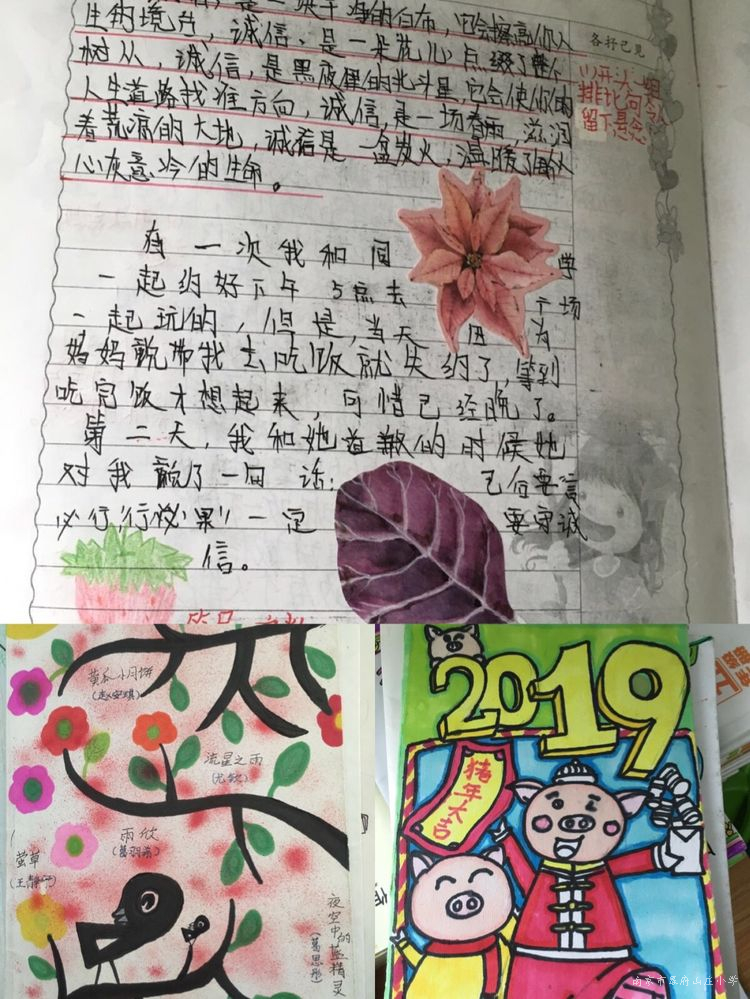 是一块干净的白布，它会擦亮你人
生的境台，诚信，是一朵花儿，点缀了整个
树从，诚信，是黑夜里的北斗星，它会使你的
人生道路找准方向，诚信，是一场春雨，滋润
着荒漠的大地，诚信是一盆炭火，温暖了每个人
心灰意冷的生命。
各抒己见
以开大班
排比句令人
留下悬念
有一次我和同学
一起约好下午5点去广场
一起玩的，但是，当天因为
妈妈说带我去吃饭就失约了，等到
吃完饭才想起来，可惜已经晚了。
第二天，我和她道歉的时候她
对我说了一句话：己何要言
必行，行必果！一定要守诚
信。
黄瓜小月饼
(赵安琪)
流星之雨
雨欣
(葛羽希)
萤草
(王静
夜空中的蓝精灵
(葛思彤)
2019
猪年大吉
南京市幕府山庄小学